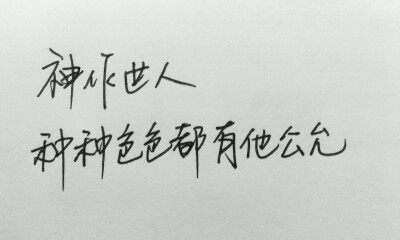 神作世人
种种色色都有他公允